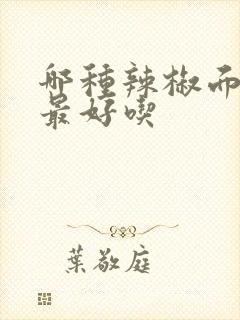 哪種辣椒而
最好喫
葉敬庭